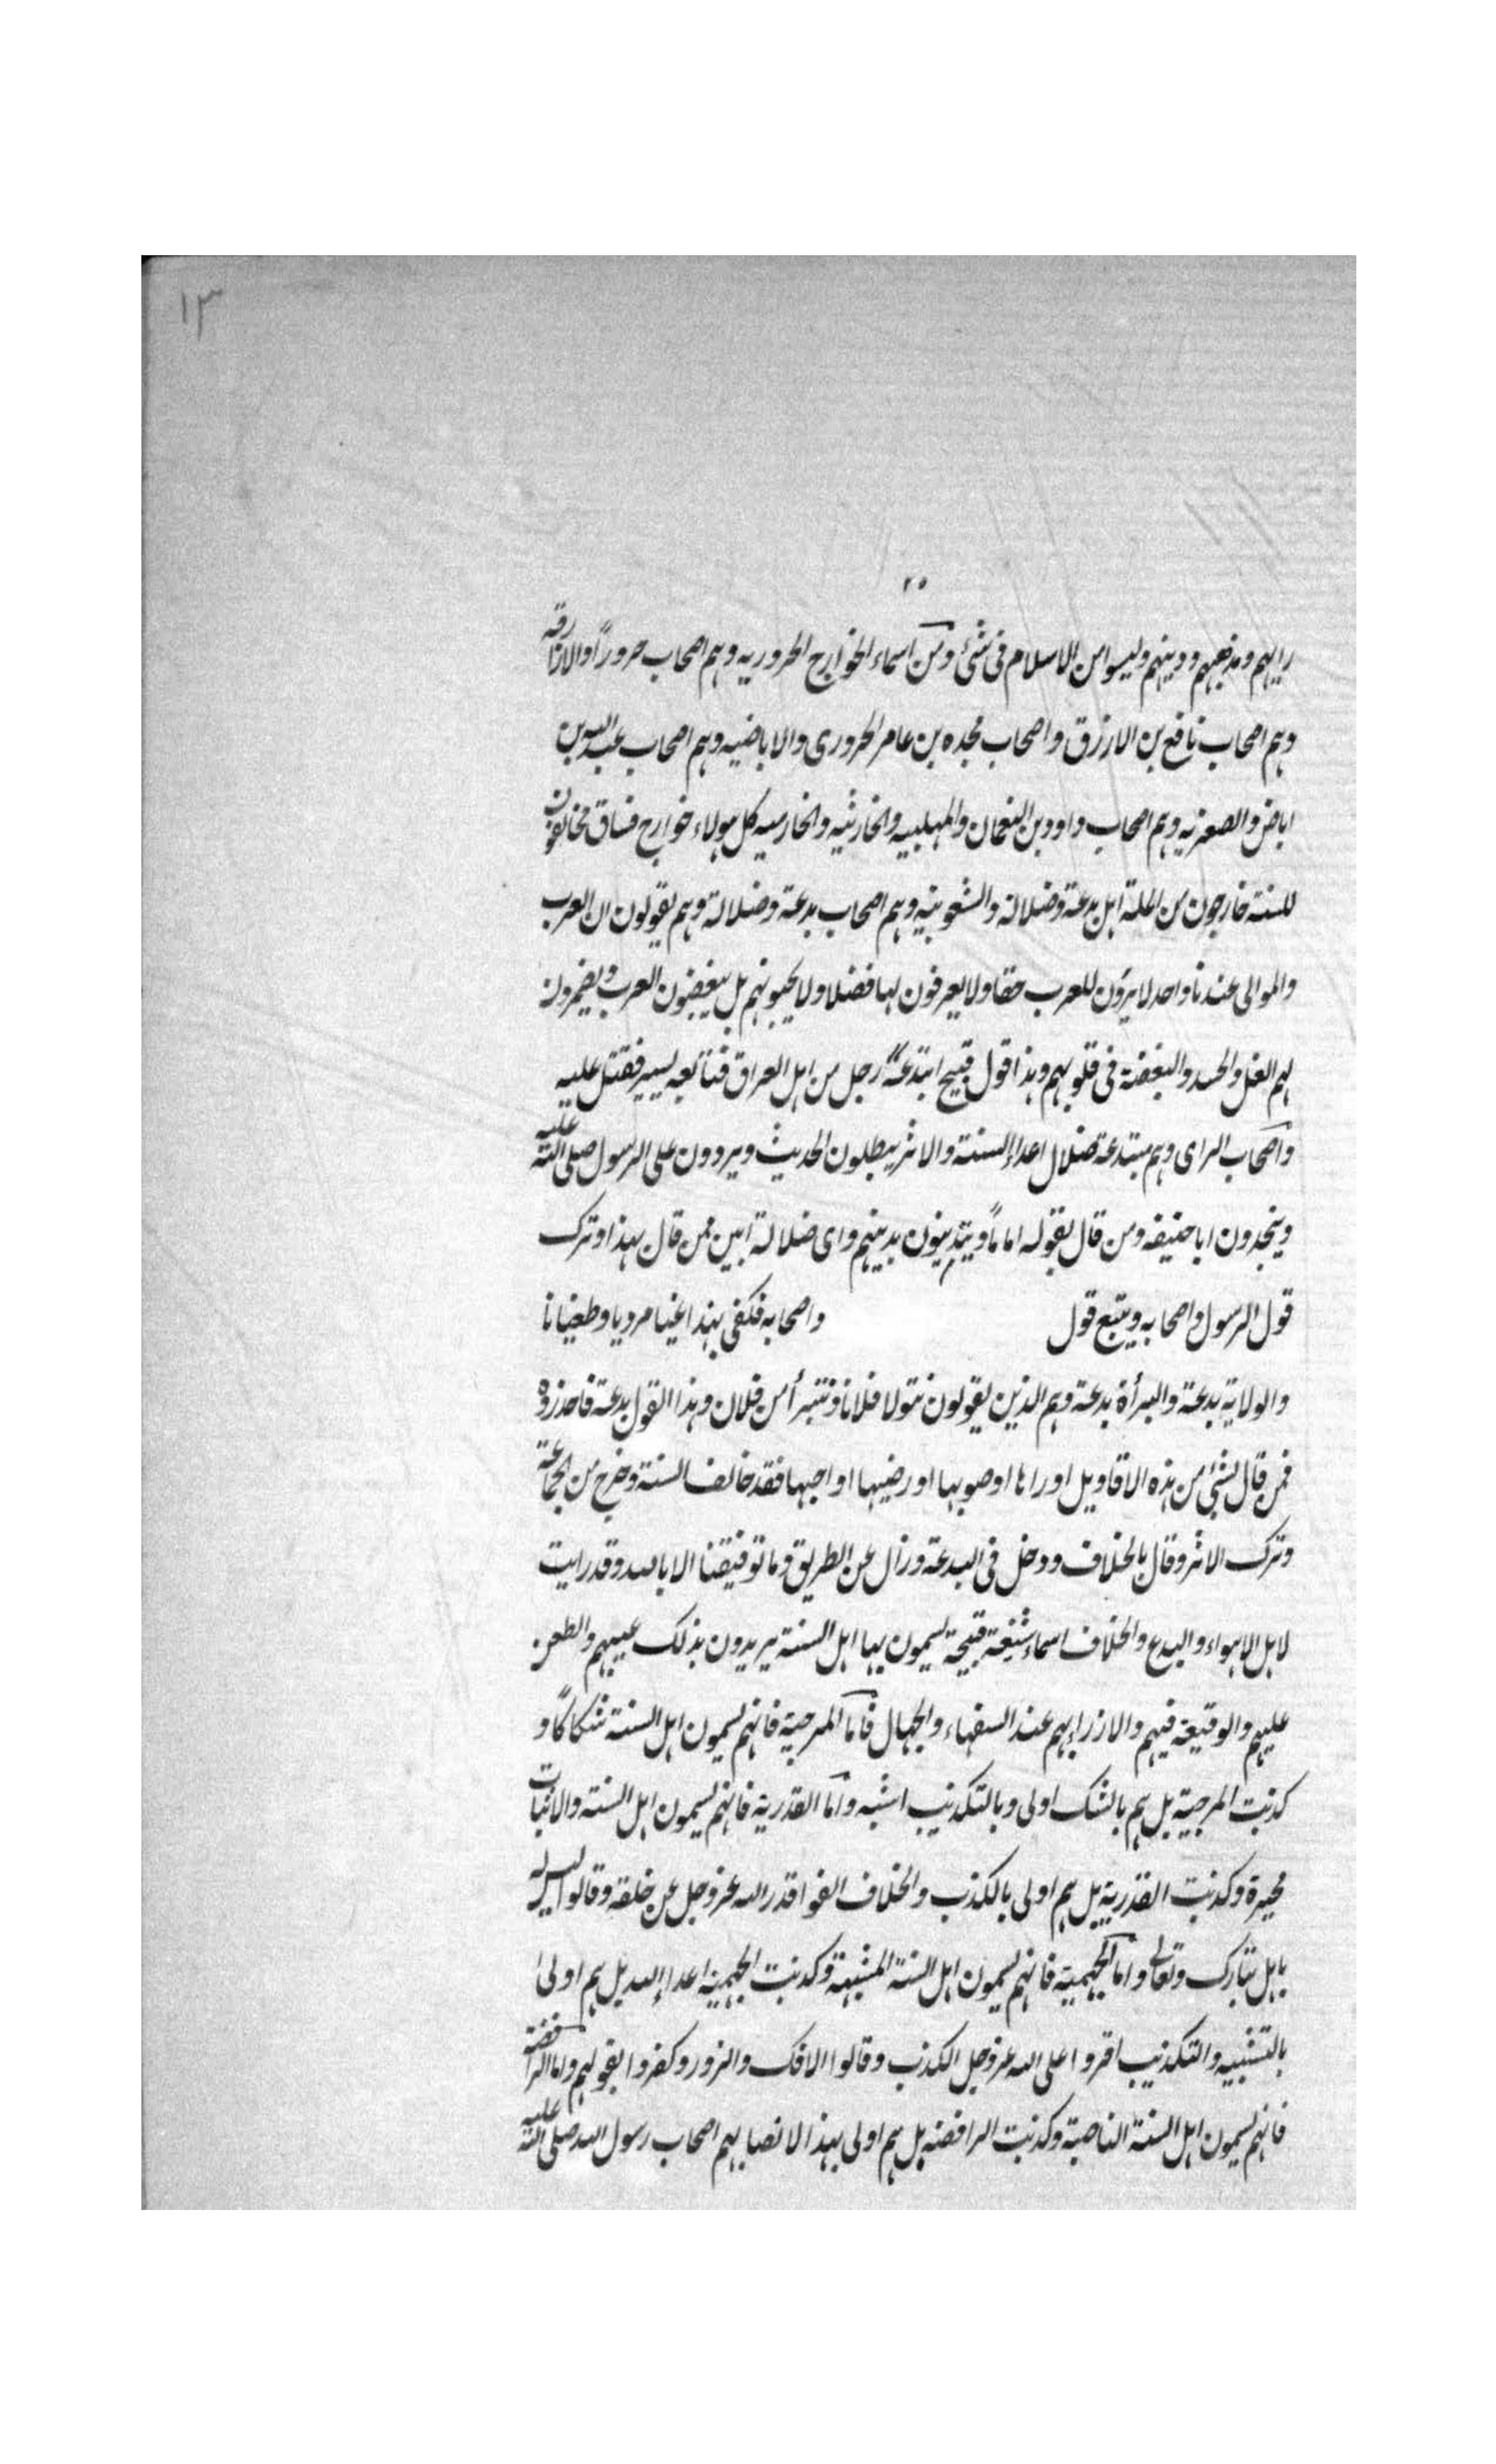 ١٣
٢٥
رايهم ومذهبهم ودينهم وليسوا من الاسلام فى شئ ومن اسماء الخوارج الحروريه وهم اصحاب حروراً والازارقه
وهم اصحاب نافع بن الازرق واصحاب نجده بن عامر الحرورى والاباضيه وهم اصحاب عبد الله بن
اباض والصعزيه وهم اصحاب داوود بن النعمان والمهلبيه والخارثيه والخارميه كل هولاء خوارج فساق مخالفون
للسنته خارجون من الملة اهل بدعة وضلالة والشعوبيه وهم اصحاب بدعة وضلالة وهم يقولون ان العرب
والموالى عندنا واحد لا يرون للعرب حقا ولا يعرفون لها فضلا ولا يحبونهم بل يبغضون العرب ويضمرون
لهم الغل والحسد والبغضة فى قلوبهم وهذا قول قبيح ابتدعه رجل من اهل العراق فتابعه يسير فقتل عليه
واصحاب الراى وهم مبتدعة ضلال اعداء السنة والاثر يبطلون الحديث ويردون على الرسول صلى الله عليه
ويتخذون ابا حنيفه ومن قال بقوله اماماً ويتدينون بدينهم واى ضلالة ابين ممن قال بهذا وترك
قول الرسول واصحابه ويتبع قول واصحابه فكفى بهذا غيا مرديا وطغيانا
والولاية بدعة والبرأة بدعة وهم الذين يقولون نتولا فلانا ونتبرأ من فلان وهذا القول بدعة فاحذروه
فمن قال بشئ من هذه الاقاويل او راها او صوبها او رضيها او احبها فقد خالف السنة وخرج من الجماعة
وترك الاثر وقال بالخلاف ودخل فى البدعة وزال عن الطريق وما توفيقنا الا بالله وقد رايت
لاهل الاهواء والبدع والخلاف اسماء شنيعة قبيحة يسمون بها اهل السنة يريدون بذلك عيبهم والطعن
عليهم والوقيعة فيهم والازراء بهم عند السفهاء والجهال فاما المرجية فانهم يسمون اهل السنة شكاكاً و
كذبت المرجية بل هم بالشك اولى وبالتكذيب اشبه واما القدرية فانهم يسمون اهل السنة والاثبات
مجبرة وكذبت القدرية بل هم اولى بالكذب والخلاف الغوا قدر الله عز وجل عن خلقه وقالوا ليس له
باهل تبارك وتعالى واما الجهمية فانهم يسمون اهل السنة المشبهة وكذبت الجهمية اعداء الله بل هم اولى
بالتشبيه والتكذيب افتروا على الله عز وجل الكذب وقالوا الافك والزور وكفروا بقولهم واما الرافضة
فانهم يسمون اهل السنة الناصبة وكذبت الرافضة بل هم اولى بهذا لانصابهم اصحاب رسول الله صلى الله عليه